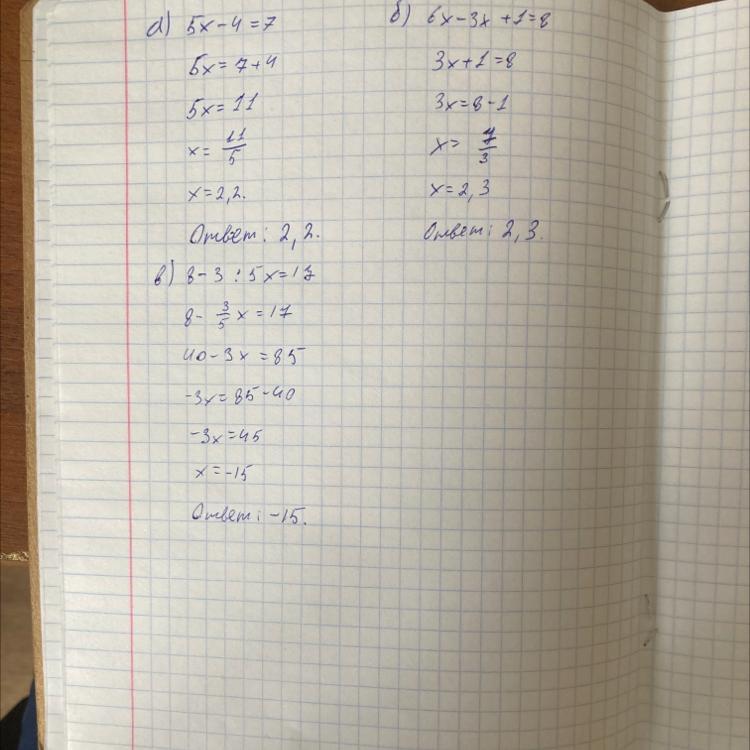 а) 5x-4=7
5x=7+4
5x=11
x=11/5
x=2,2.
Ответ: 2,2.
б) 6x-3x+1=8
3x+1=8
3x=8-1
x=7/3
x=2,3
Ответ: 2,3.
в) 8-3:5x=17
8-3/5x=17
40-3x=85
-3x=85-40
-3x=45
x=-15
Ответ: -15.